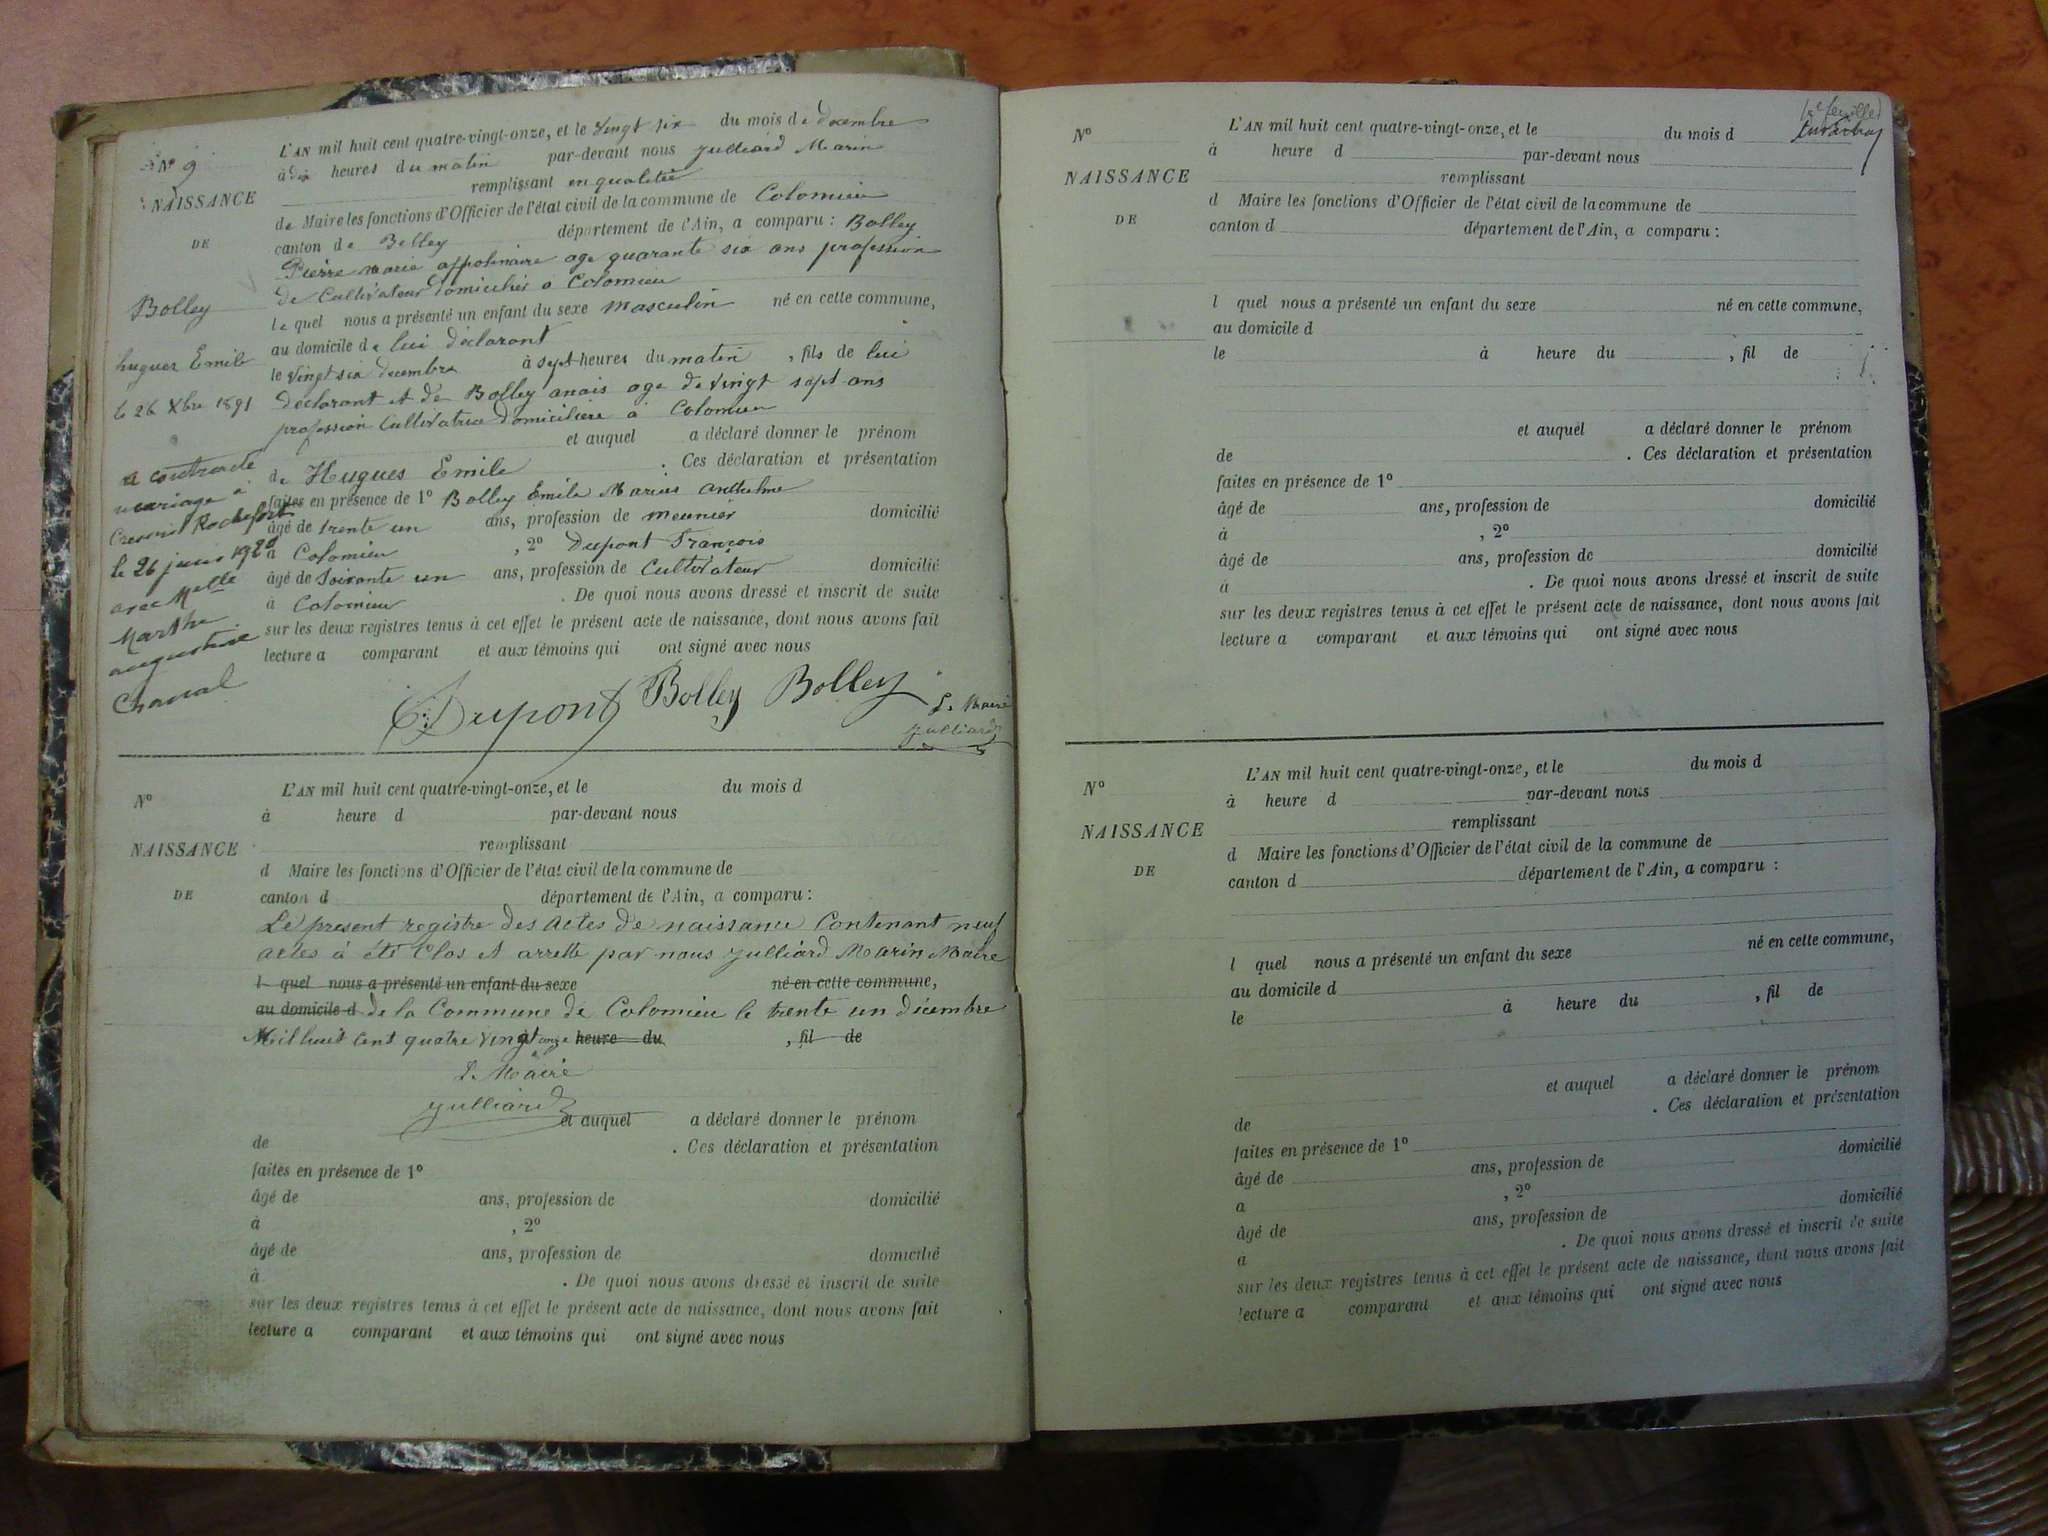 N° 9
NAISSANCE
DE
Bolley
hugues Emile
le 26 Xbre 1891
a contracté
mariage à
Cressin Rochefort
le 26 juin 1920
avec Melle
Marthe
augustine
L'AN mil huit cent quatre-vingt-onze, et le Vingt six du mois de decembre
à dix heures du matin par-devant nous Julliard Marin
remplissant en qualité
de Maire les fonctions d'Officier de l'état civil de la commune de Colomieu
canton de Belley département de l'Ain, a comparu : Bolley
Pierre Marie appolinaire age quarante six ans profession
de Cultivateur domicilié à Colomieu
le quel nous a présenté un enfant du sexe Masculin né en cette commune,
au domicile de lui déclarant
le Vingt six decembre à sept heures du matin , fils de lui
déclarant et de Bolley anais age de Vingt sept ans
profession Cultivatrice domicilière à Colomieu
et auquel a déclaré donner le prénom
de Hugues Emile . Ces déclaration et présentation
faites en présence de 1° Bolley Emile Marius anthelme
âgé de trente un ans, profession de meunier domicilié
à Colomieu , 2° Dupont François
âgé de Soixante un ans, profession de Cultivateur domicilié
à Colomieu . De quoi nous avons dressé et inscrit de suite
sur les deux registres tenus à cet effet le présent acte de naissance, dont nous avons fait
lecture a comparant et aux témoins qui ont signé avec nous
Dupont Bolley Bolley Le Maire
Julliard
N°
NAISSANCE
DE
L'AN mil huit cent quatre-vingt-onze, et le du mois d
à heure d par-devant nous
remplissant
d Maire les fonctions d'Officier de l'état civil de la commune de
canton d département de l'Ain, a comparu :
Le present registre des actes de naissance Contenant neuf
actes à été Clos et arretté par nous Julliard Marin Maire
l quel nous a présenté un enfant du sexe né en cette commune,
au domicile d de la Commune de Colomieu le trente un décembre
Mil huit Cent quatre vingt onze heure du , fil de
Le Maire
Julliard
et auquel a déclaré donner le prénom
de . Ces déclaration et présentation
faites en présence de 1°
âgé de ans, profession de domicilié
à , 2°
âgé de ans, profession de domicilié
à . De quoi nous avons dressé et inscrit de suite
sur les deux registres tenus à cet effet le présent acte de naissance, dont nous avons fait
lecture a comparant et aux témoins qui ont signé avec nous
N°
NAISSANCE
DE
L'AN mil huit cent quatre-vingt-onze, et le du mois d
à heure d par-devant nous
remplissant
d Maire les fonctions d'Officier de l'état civil de la commune de
canton d département de l'Ain, a comparu :
l quel nous a présenté un enfant du sexe né en cette commune,
au domicile d
le à heure du , fil de
et auquel a déclaré donner le prénom
de . Ces déclaration et présentation
faites en présence de 1°
âgé de ans, profession de domicilié
à , 2°
âgé de ans, profession de domicilié
à . De quoi nous avons dressé et inscrit de suite
sur les deux registres tenus à cet effet le présent acte de naissance, dont nous avons fait
lecture a comparant et aux témoins qui ont signé avec nous
N°
NAISSANCE
DE
L'AN mil huit cent quatre-vingt-onze, et le du mois d
à heure d par-devant nous
remplissant
d Maire les fonctions d'Officier de l'état civil de la commune de
canton d département de l'Ain, a comparu :
l quel nous a présenté un enfant du sexe né en cette commune,
au domicile d
le à heure du , fil de
et auquel a déclaré donner le prénom
de . Ces déclaration et présentation
faites en présence de 1°
âgé de ans, profession de domicilié
a , 2°
âgé de ans, profession de domicilié
à . De quoi nous avons dressé et inscrit de suite
sur les deux registres tenus à cet effet le présent acte de naissance, dont nous avons fait
lecture a comparant et aux témoins qui ont signé avec nous